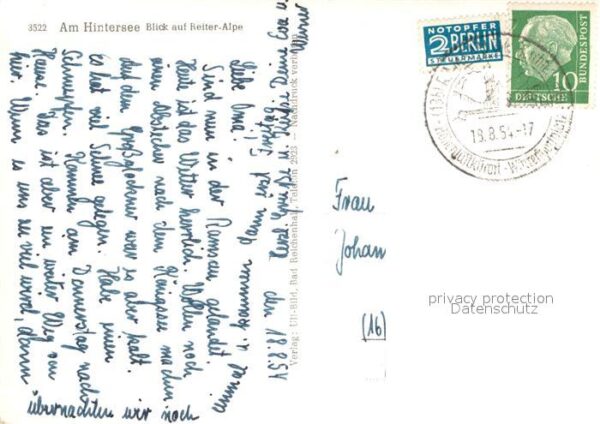 3522 Am Hintersee Blick auf Reiter-Alpe
den 18.8.54
Liebe Oma!
Sind nun in der Ramsau gelandet.
Heute ist das Wetter herrlich. Wollen noch
einen Abstecher nach dem Königssee machen
Auf dem Großglockner war es aber kalt.
Es hat viel Schnee gelegen. Habe einen
Schnupfen. Kommen am Donnerstag nach
Hause. Das ist aber ein weiter Weg von
hier. Wenn es uns zu viel wird, dann
übernachten wir noch
einmal
Herzl. Grüße u. Küsse Deine Eva u.
Verlag: Ull-Bild, Bad Reichenhall, Telefon 2923 - Nachdruck verboten
NOTOPFER
2 BERLIN
STEUERMARKE
DEUTSCHE
BUNDESPOST
10
18.8.54-17
Frau
Johan
(16)
privacy protection
Datenschutz